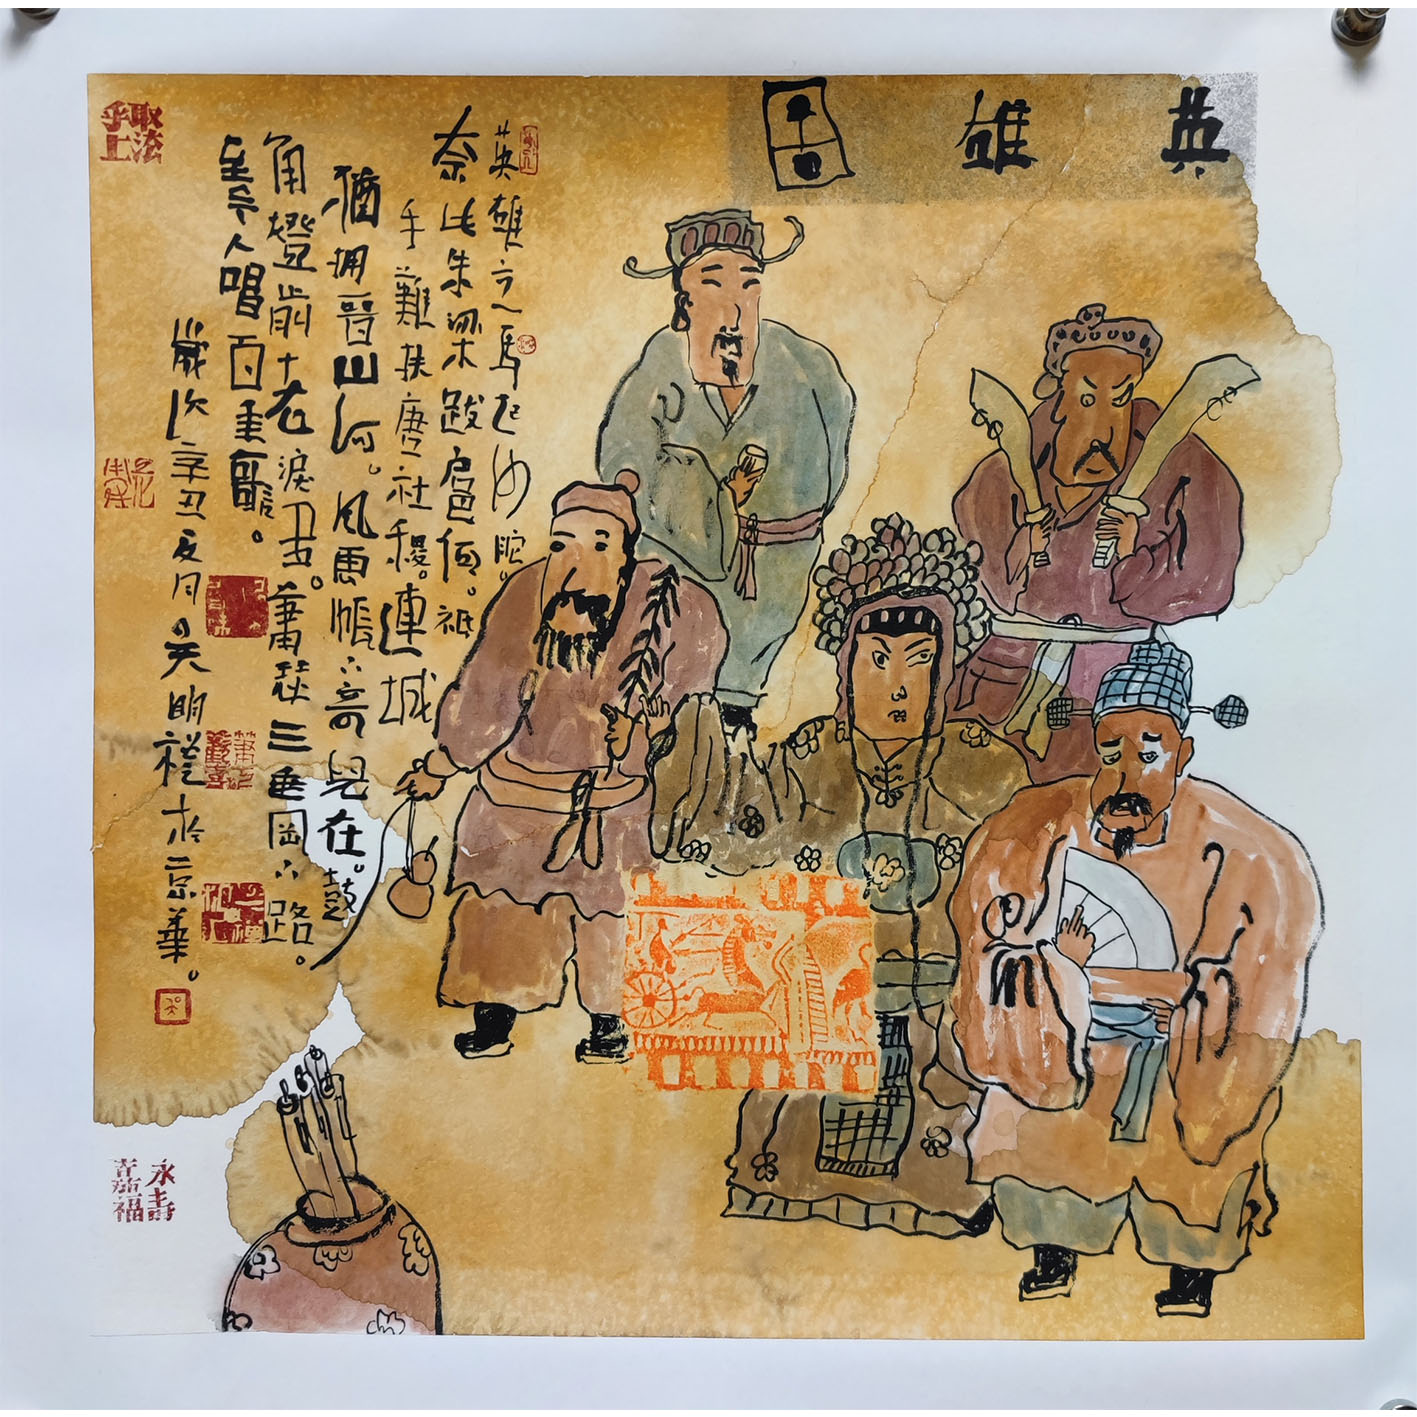 英雄
英雄立马起沙陀。
奈此朱梁跋扈何。祗
手難扶唐社稷。連城
猶拥晉山河。风雲帳下奇兒在。鼓
角燈前老淚多。蕭瑟三垂岡下路。
至今人唱百年歌。
歲次辛丑夏月。吴明禮於京華。
取法乎上
永壽嘉福